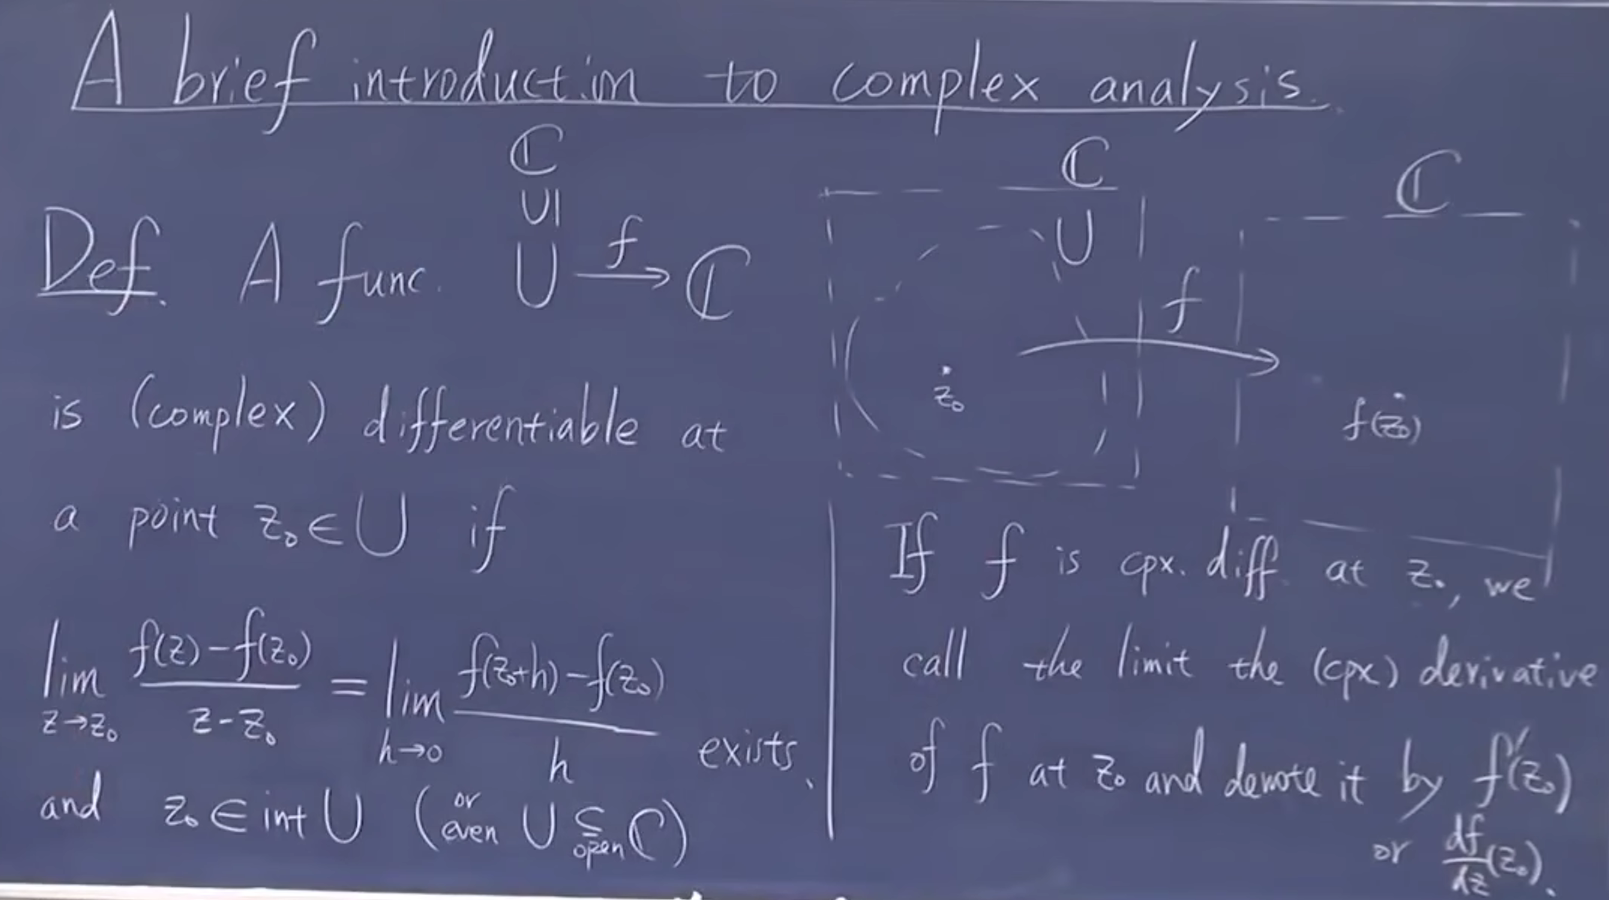 A brief introduction to complex analysis.
ℂ
∪|
Def. A func. U —f→ ℂ
is (complex) differentiable at
a point z₀ ∈ U if
lim_{z→z₀} (f(z)-f(z₀))/(z-z₀) = lim_{h→0} (f(z₀+h)-f(z₀))/h exists,
and z₀ ∈ int U (or even U ⊆_{open} ℂ)
ℂ
U
z₀
f
ℂ
f(z₀)
If f is cpx. diff. at z₀, we
call the limit the (cpx) derivative
of f at z₀ and denote it by f'(z₀)
or df/dz (z₀).